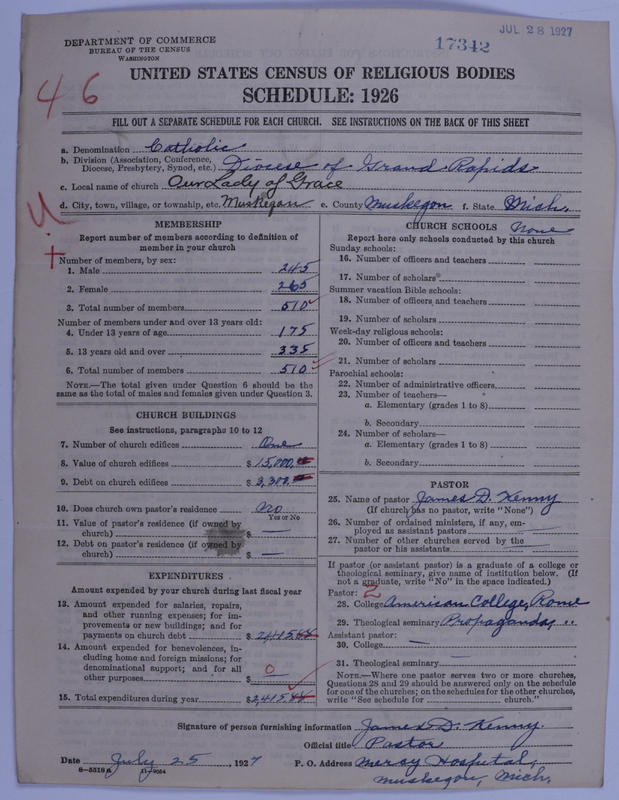 JUL 28 1927
DEPARTMENT OF COMMERCE
BUREAU OF THE CENSUS
WASHINGTON
17342
46
UNITED STATES CENSUS OF RELIGIOUS BODIES
SCHEDULE: 1926
FILL OUT A SEPARATE SCHEDULE FOR EACH CHURCH. SEE INSTRUCTIONS ON THE BACK OF THIS SHEET
a. Denomination Catholic
b. Division (Association, Conference, Diocese, Presbytery, Synod, etc.) Diocese of Grand Rapids
c. Local name of church Our Lady of Grace
d. City, town, village, or township, etc. Muskegan e. County Muskegon f. State Mich.
MEMBERSHIP
Report number of members according to definition of
member in your church
Number of members, by sex:
1. Male 245
2. Female 265
3. Total number of members 510
Number of members under and over 13 years old:
4. Under 13 years of age 175
5. 13 years old and over 335
6. Total number of members 510
NOTE.—The total given under Question 6 should be
same as the total of males and females given under Question 3.
CHURCH BUILDINGS
See instructions, paragraphs 10 to 12
7. Number of church edifices One
8. Value of church edifices $ 15,000.
9. Debt on church edifices $ 3,300.
10. Does church own pastor's residence No
Yes or No
11. Value of pastor's residence (if owned by
church) $ —
12. Debt on pastor's residence (if owned by
church) $ —
EXPENDITURES
Amount expended by your church during last fiscal year
13. Amount expended for salaries, repairs,
and other running expenses; for im-
provements or new buildings; and for
payments on church debt $ 2415
14. Amount expended for benevolences, in-
cluding home and foreign missions; for
denominational support; and for all
other purposes $ 0
15. Total expenditures during year $ 2415
CHURCH SCHOOLS None
Report here only schools conducted by this church
Sunday schools:
16. Number of officers and teachers
17. Number of scholars
Summer vacation Bible schools:
18. Number of officers and teachers
19. Number of scholars
Week-day religious schools:
20. Number of officers and teachers
21. Number of scholars
Parochial schools:
22. Number of administrative officers
23. Number of teachers—
a. Elementary (grades 1 to 8)
b. Secondary
24. Number of scholars—
a. Elementary (grades 1 to 8)
b. Secondary
PASTOR
25. Name of pastor James D. Kenny
(If church has no pastor, write "None")
26. Number of ordained ministers, if any, em-
ployed as assistant pastors —
27. Number of other churches served by the
pastor or his assistants —
If pastor (or assistant pastor) is a graduate of a college or
theological seminary, give name of institution below. (If
not a graduate, write "No" in the space indicated.)
Pastor: 2
28. College American College, Rome
29. Theological seminary Propaganda, "
Assistant pastor:
30. College —
31. Theological seminary —
NOTE.—Where one pastor serves two or more churches,
Questions 28 and 29 should be answered only on the schedule
for one of the churches; on the schedules for the other churches,
write "See schedule for church."
Signature of person furnishing information James D. Kenny
Official title Pastor
Date July 25, 1927 P. O. Address Mercy Hospital,
Muskegon, Mich.